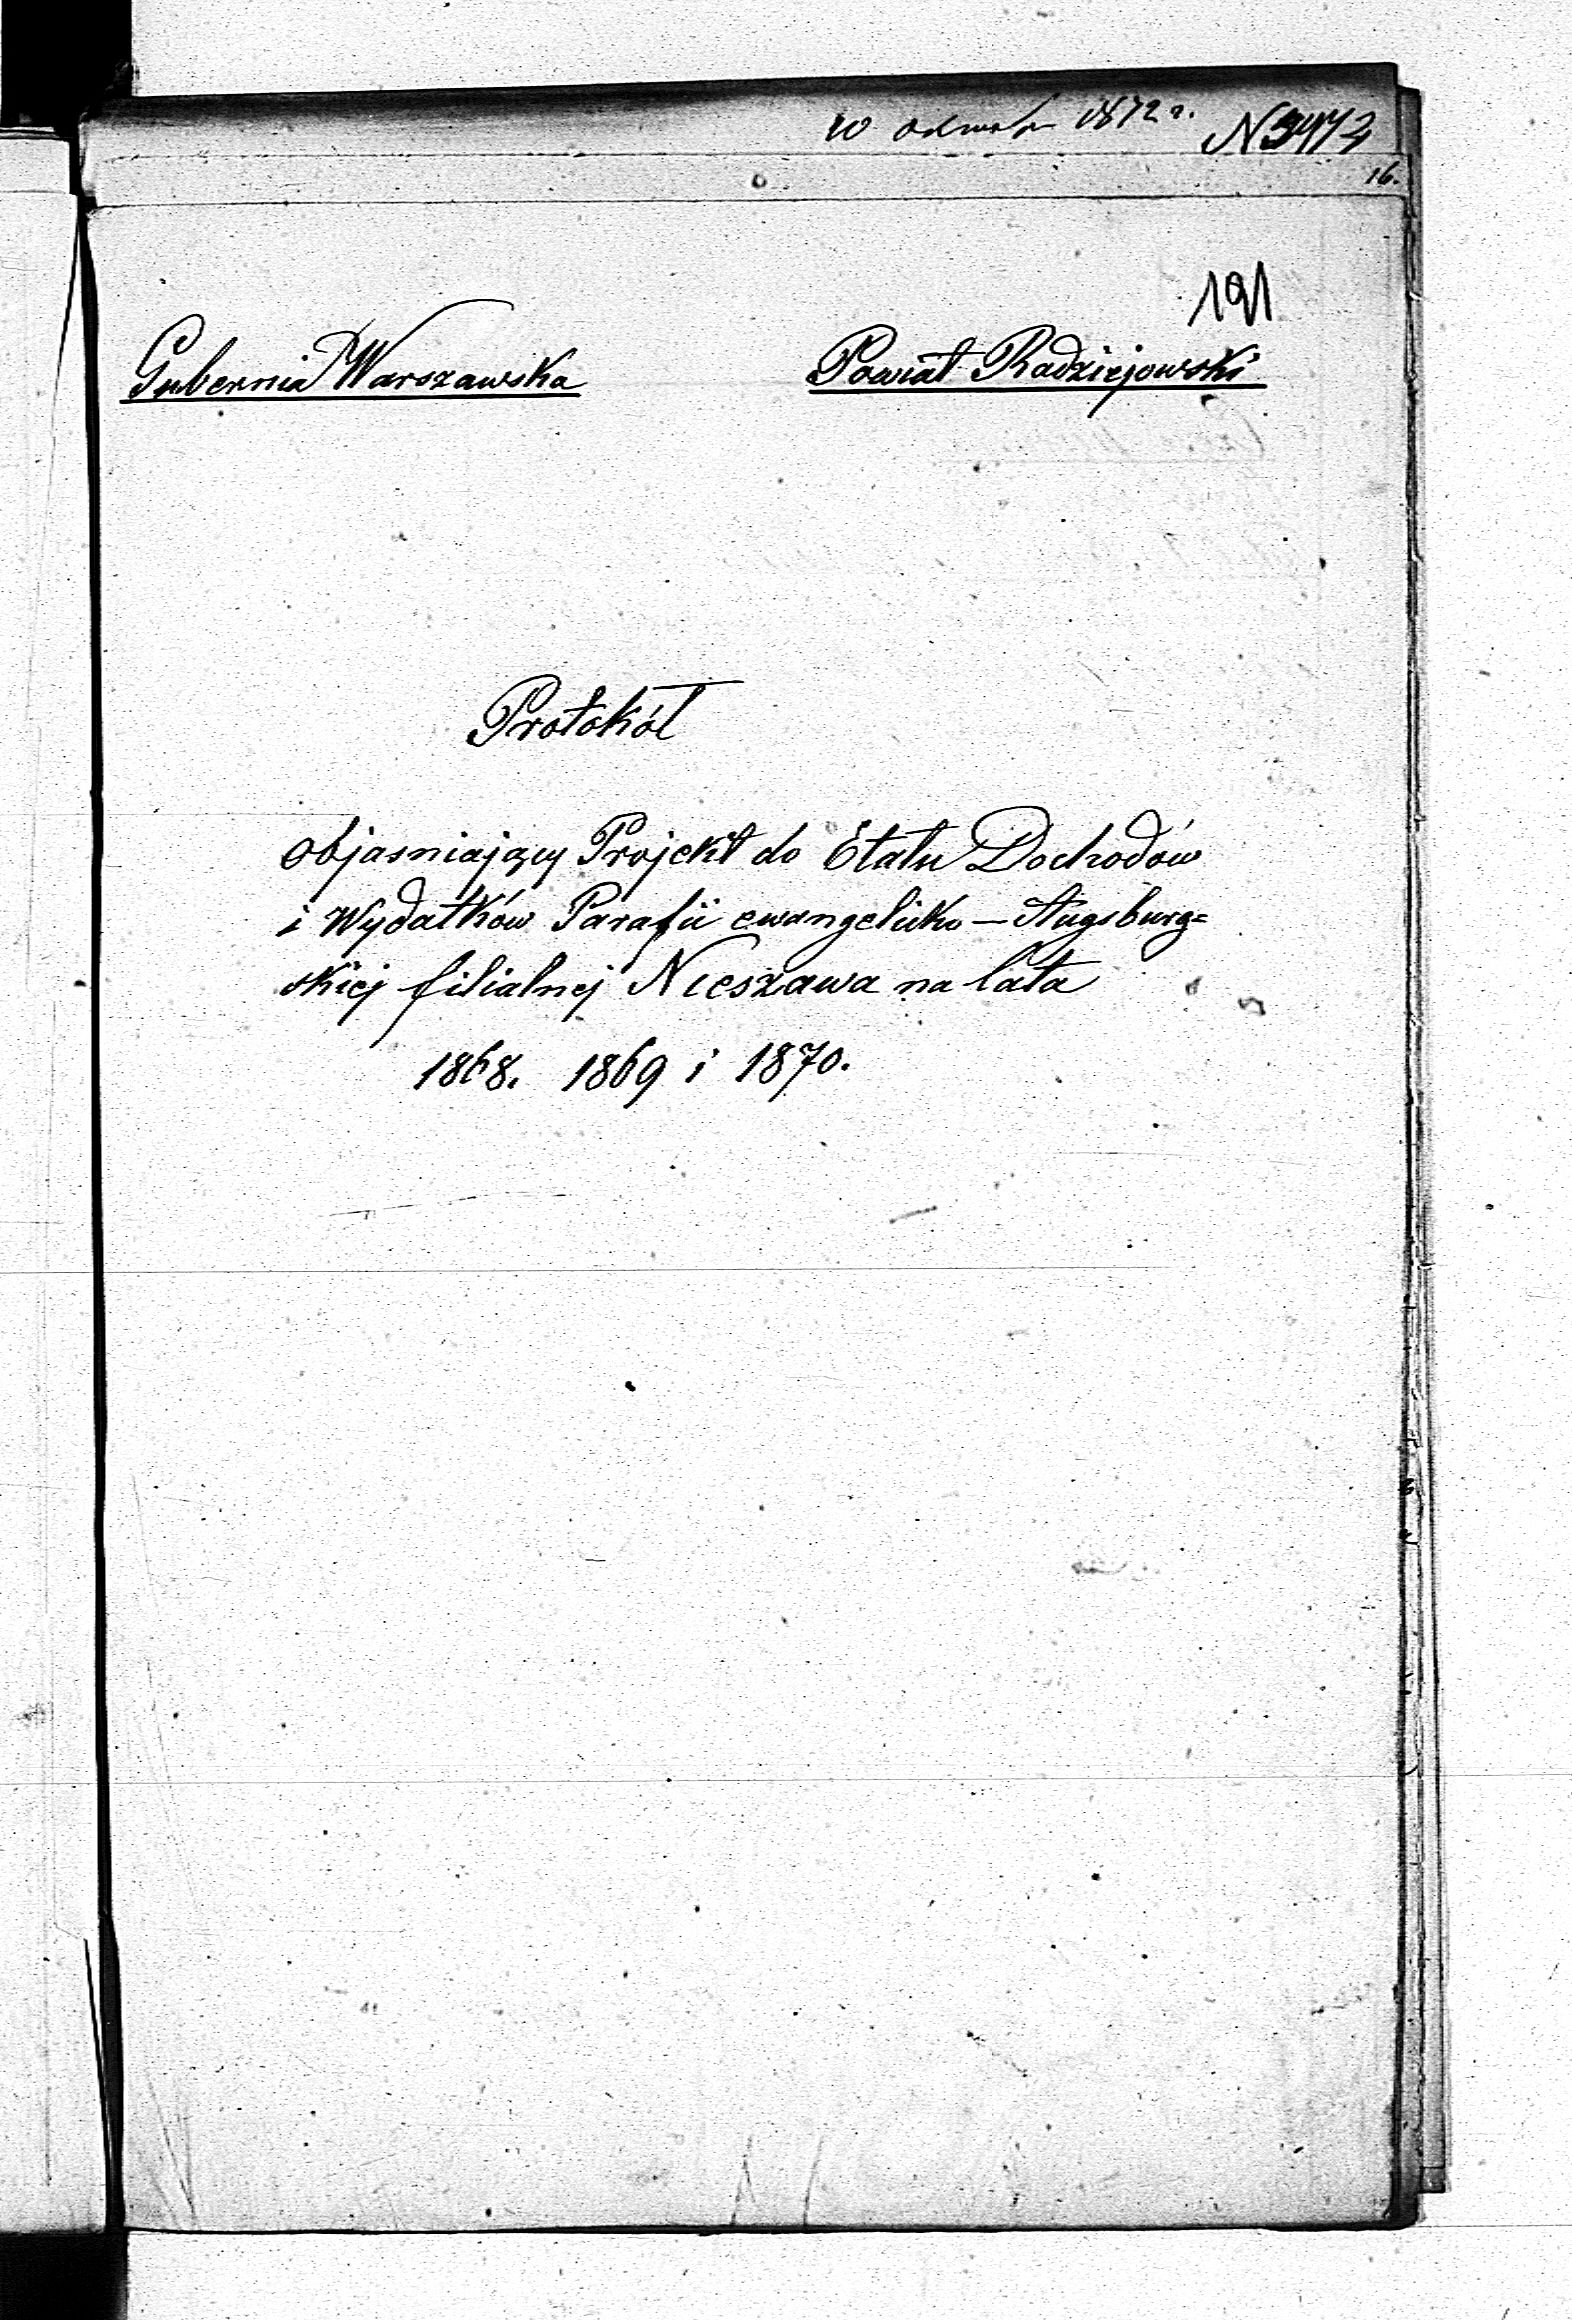 10 1872 г. N 3472
16.
191
Gubernia Warszawska Powiat Radziejowski
Protokół
objasniający Projekt do Etatu Dochodów
i Wydatków Parafii ewangelicko — Augsburg=
skiej filialnej Nieszawa na lata
1868. 1869 i 1870.